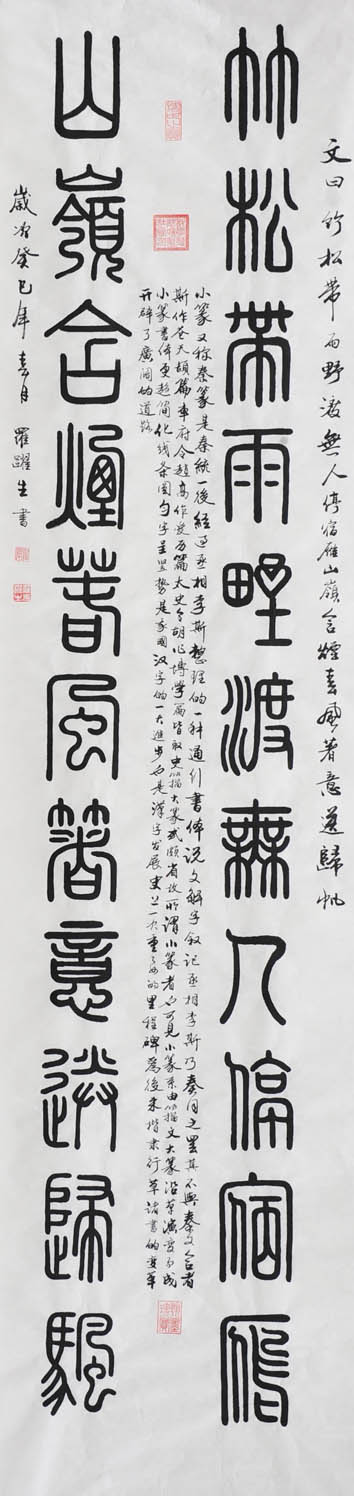 文曰竹松带雨野渡無人停宿雁山嶺含煙春風着意送歸帆
竹松帶雨野渡無人停宿雁
小篆又称秦篆是秦統一後經丞相李斯整理的一种通行書体说文解字叙记丞相李斯乃奏同之罢其不與秦文合者
斯作苍頡篇車府令趙高作爰历篇太史令胡毋作博學篇皆取史籀大篆或頗省改所謂小篆者也可見小篆系由籀文大篆沿革演变而成
小篆書体更趋简化线条圆匀字呈竖势是我國汉字的一大進步也是漢字发展史上一个重要的里程碑為後来楷隶行草諸書的变革
开辟了廣阔的道路
山嶺含煙春風箸意送歸颿
歲次癸巳年春月 羅躍生書